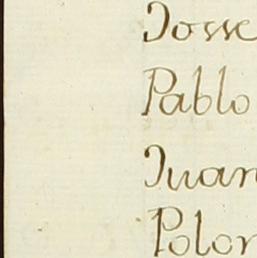 Josse
Pablo
Juan
Polon